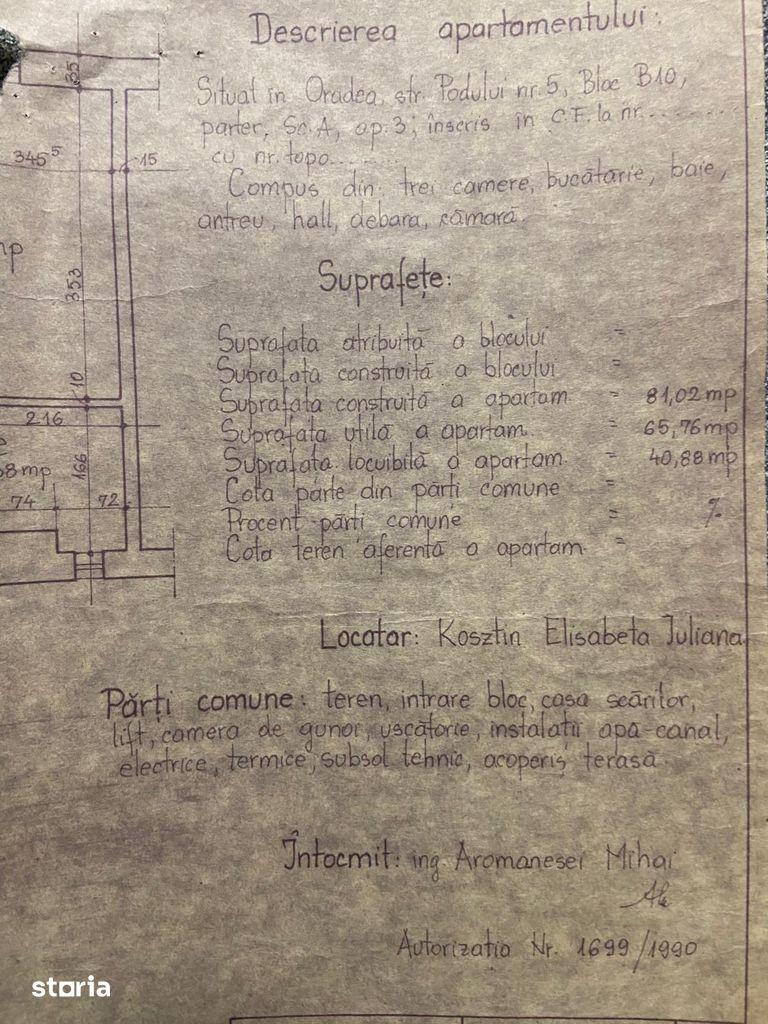 Descrierea apartamentului:
Situat în Oradea, str. Podului nr. 5, Bloc B10,
parter, Sc. A, ap. 3; înscris în C.F. la nr..........
cu nr. topo.........
Compus din trei camere, bucătărie, baie,
antreu, hall, debara, cămara.
Suprafețe:
Suprafata atribuită a blocului =
Suprafata construită a blocului =
Suprafata construită a apartam. = 81,02 mp
Suprafata utilă a apartam. = 65,76 mp
Suprafata locuibilă a apartam. = 40,88 mp
Cota parte din părți comune =
Procent părți comune = %
Cota teren aferentă a apartam. =
Locatar: Kosztin Elisabeta Iuliana
Părți comune: teren, intrare bloc, casa scărilor,
lift, camera de gunoi, uscătorie, instalații apă-canal,
electrice, termice, subsol tehnic, acoperiș terasă.
Întocmit: ing. Aromanesei Mihai
Autorizatia Nr. 1699/1990
35
345⁵
15
mp
353
10
216
166
8 mp
74
72
storia